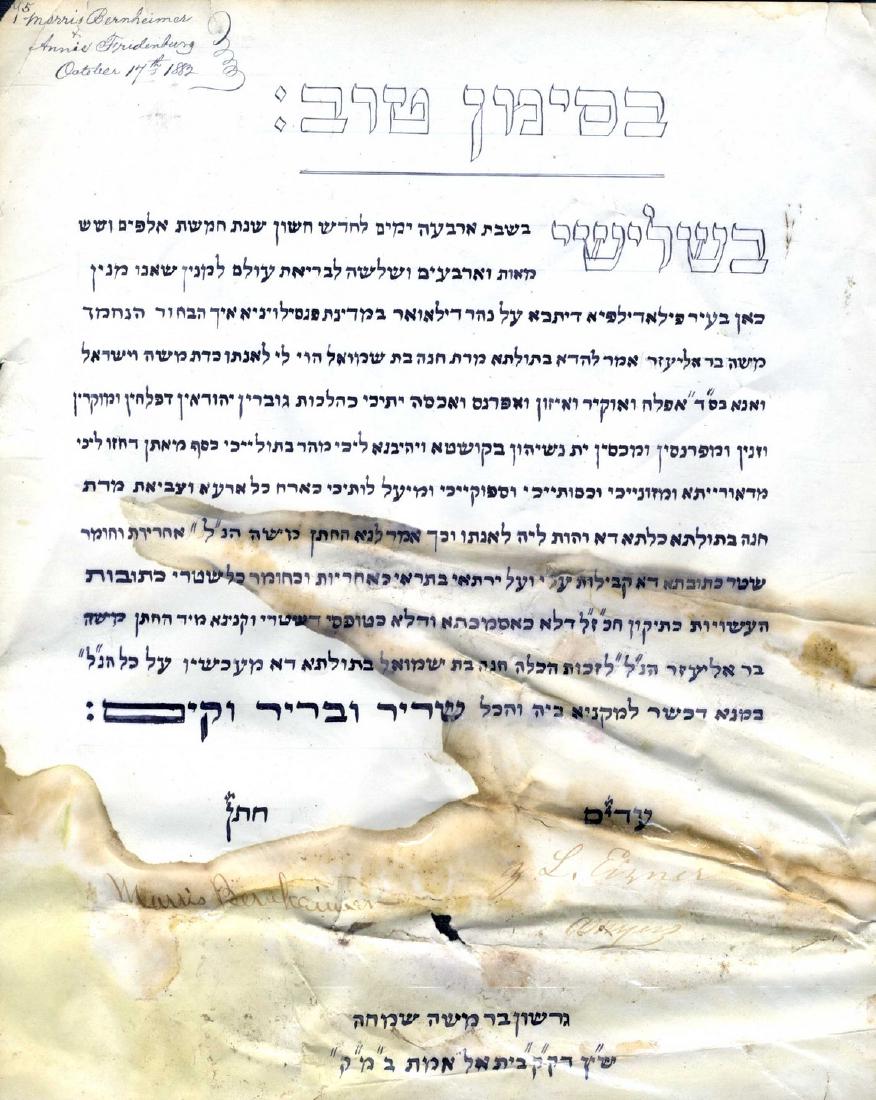 Morris Bernheimer
&
Annie Fridenburg
October 17th 1882
בסימן טוב:
בשלישי בשבת ארבעה ימים לחדש חשון שנת חמשת אלפים ושש
מאות וארבעים ושלשה לבריאת עולם למנין שאנו מנין
כאן בעיר פילאדילפיא דיתבא על נהר דילאואר במדינת פנסילויניא איך הבחור הנחמד
משה בר אליעזר אמר להדא בתולתא מרת חנה בת שמואל הוי לי לאנתו כדת משה וישראל
ואנא בס״ד אפלח ואוקיר ואיזון ואפרנס ואכסה יתיכי כהלכות גוברין יהודאין דפלחין ומוקרין
וזנין ומפרנסין ומכסין ית נשיהון בקושטא ויהיבנא ליכי מהר בתולייכי כסף מאתן דחזו ליכי
מדאורייתא ומזונייכי וכסותייכי וספוקייכי ומיעל לותיכי כארח כל ארעא וצביאת מרת
חנה בתולתא כלתא דא והות ליה לאנתו וכך אמר לנא החתן משה הנ״ל אחריות וחומר
שטר כתובתא דא קבילות עלי ועל ירתאי בתראי כאחריות וכחומר כל שטרי כתובות
העשויות כתיקון חכ״ז״ל דלא כאסמכתא ודלא כטופסי דשטרי וקנינא מיד החתן משה
בר אליעזר הנ״ל לזכות הכלה חנה בת שמואל בתולתא דא מעכשיו על כל הנ״ל
במנא דכשר למקניא ביה והכל שריר ובריר וקים:
עדים חתן
L. Eizner
Morris Bernheimer
גרשון בר משה שמחה
ש״ץ דק״ק בית אל אמת ב״מ״ק